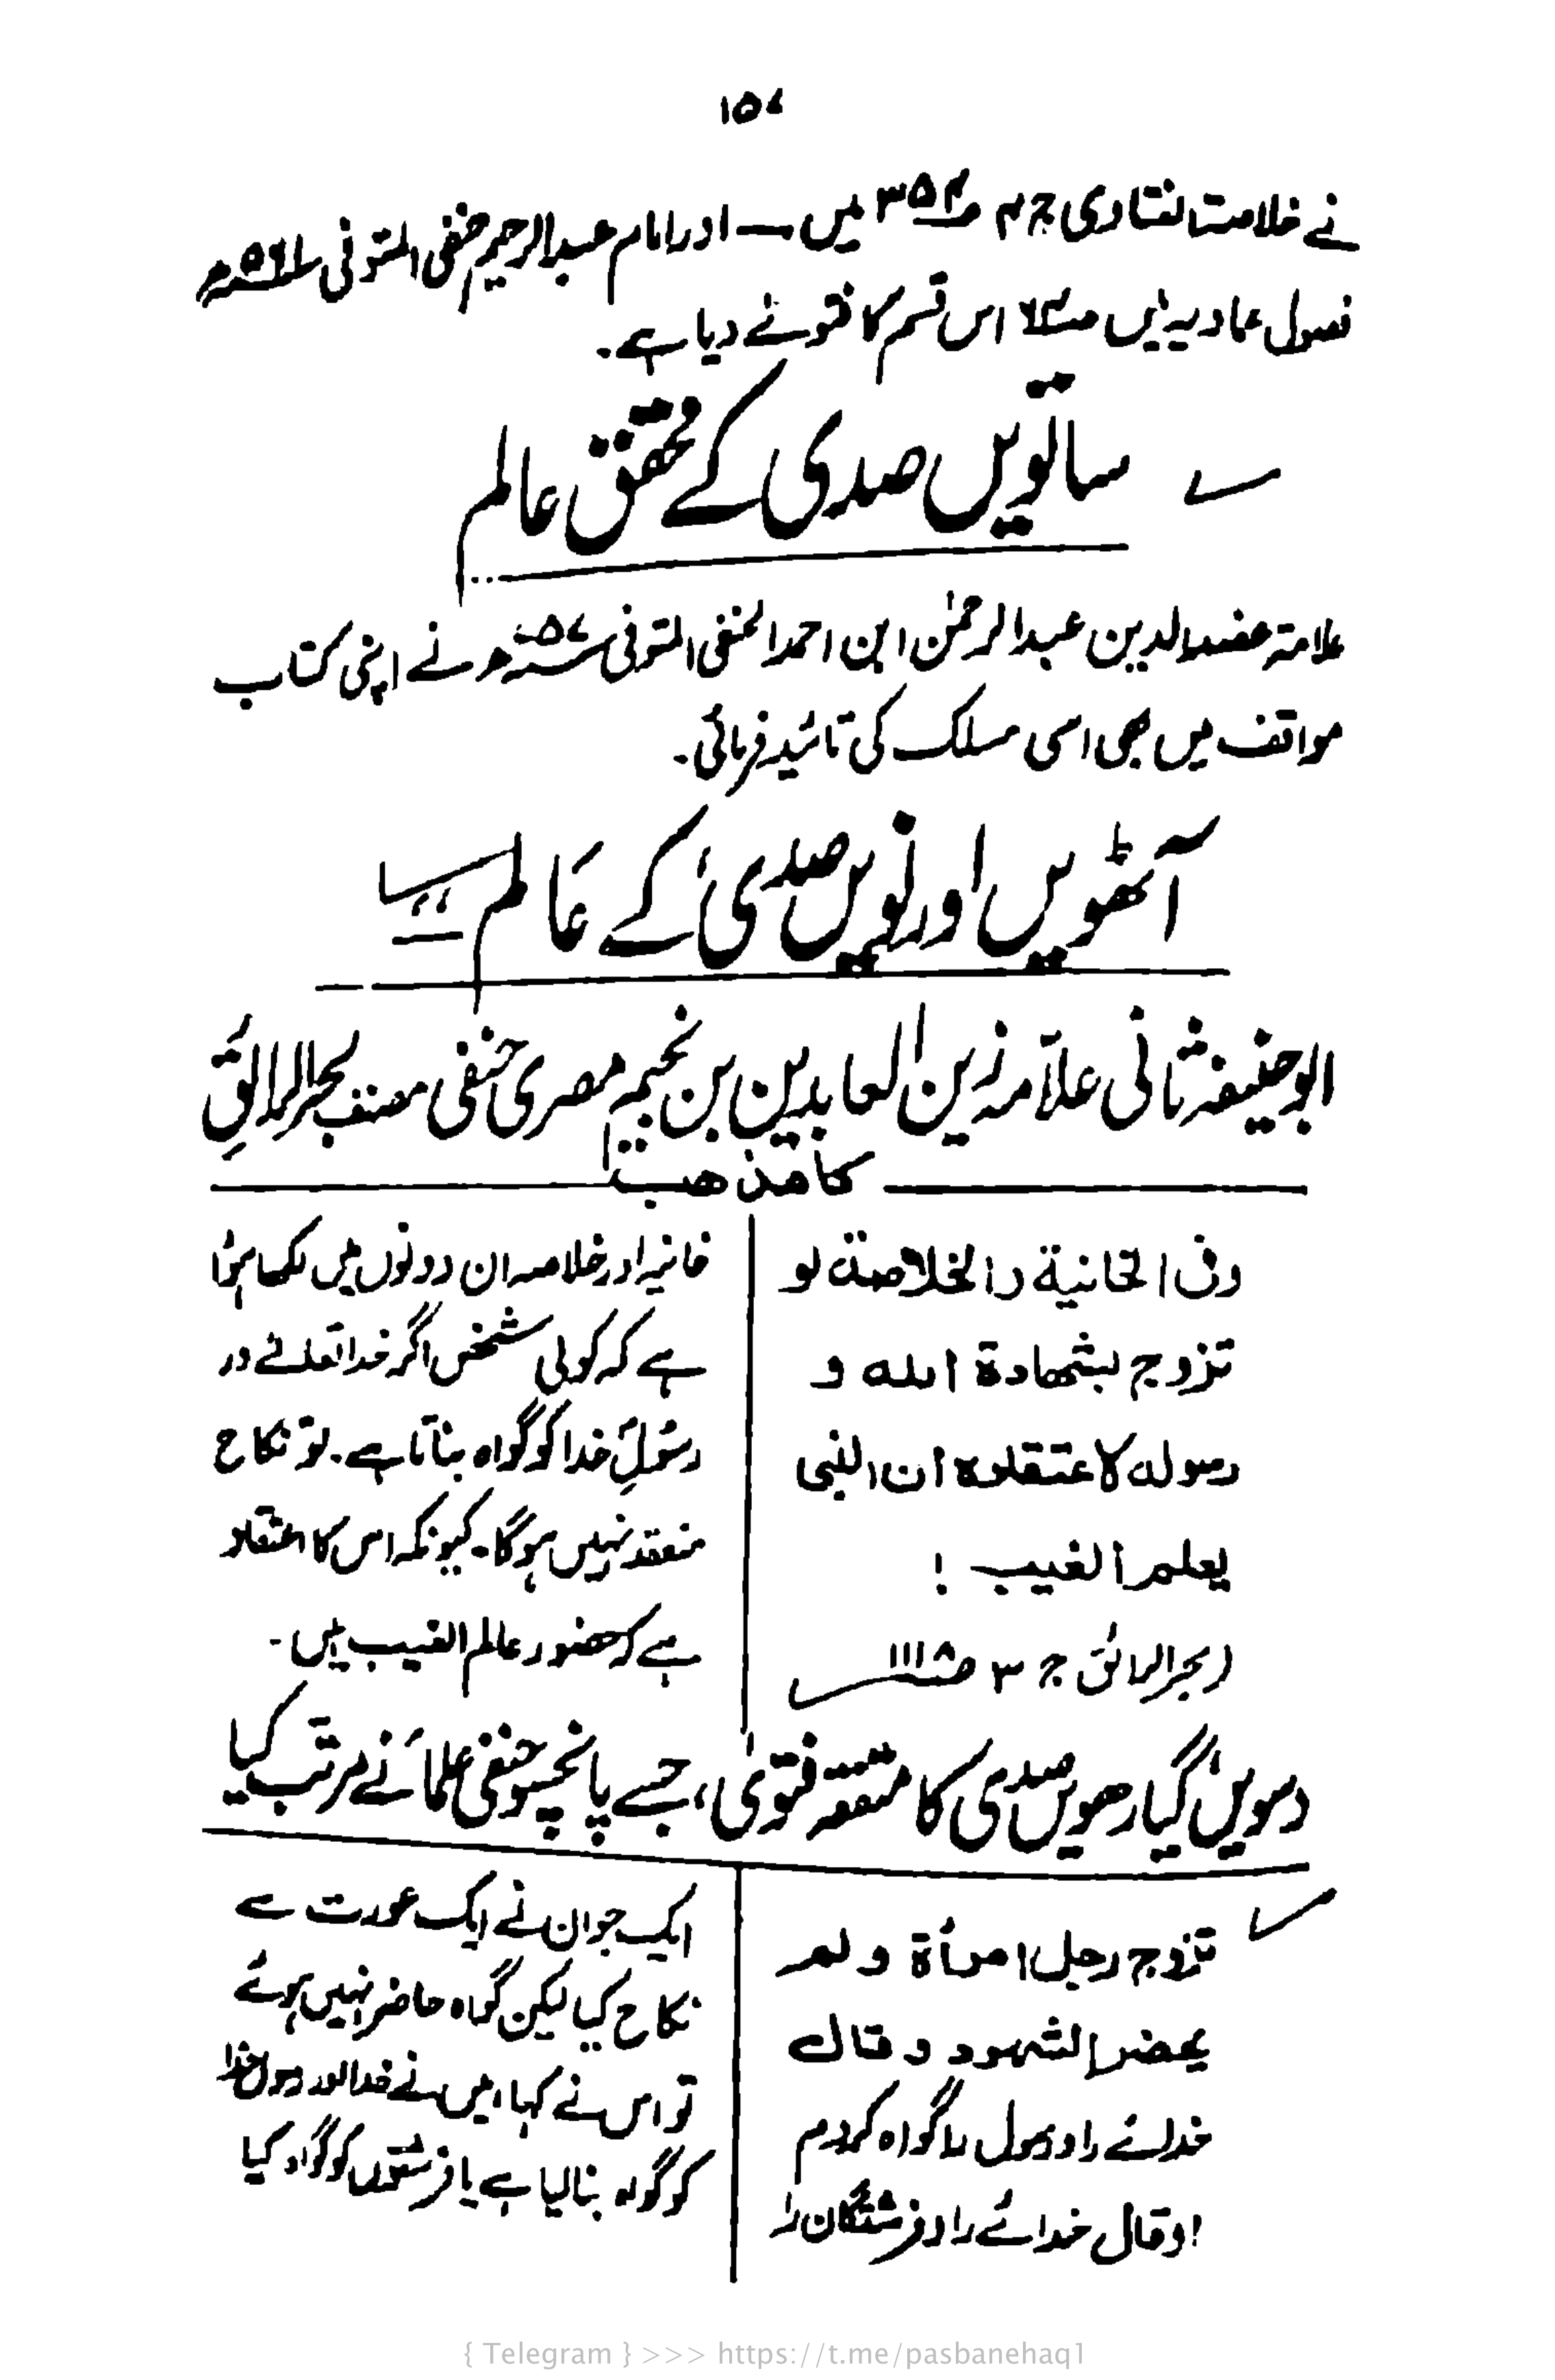 ۱۵۷
نے خلاصۃ الفتاوی ج ۴ ص۳۵۴ میں — اور امام عبدالرحیم حنفی المتوفی
فصول عمادیہ میں اس قسم کا فتوےٰ دیا ہے۔
ساتویں صدی کے محقق عالم
علامہ عضدالدین عبدالرحمٰن ابن احمد الحنفی المتوفی نے اپنی کتاب
مواقف میں بھی اسی مسلک کی تائید فرمائی۔
آٹھویں اور نویں صدی کے عالم
ابوحنیفہ ثانی علامہ زین العابدین بن نجیم مصری حنفی مصنف بحرالرائق
کا مذھب
وفی الخانیة والخلاصة لو
تزوج بشھادة الله و
رسوله لا ینعقد ان النبی
یعلم الغیب !
(بحرالرائق ج ۳ ص
خانیہ اور خلاصہ ان دونوں میں لکھا ہوا
ہے کہ کوئی شخص اگر خدا تعالےٰ اور
رسولِ خدا کو گواہ بناتا ہے۔ تو نکاح
منعقد نہیں ہوگا۔ کیونکہ اس کا اعتقاد
ہے کہ حضور عالم الغیب ہیں۔
دسویں گیارھویں صدی کا متفقہ فتویٰ، جسے پانچسو حنفی علماء نے مرتب کیا
تزوج رجل امرأة ولم
یحضر الشھود وقال
خدائے را ورسول را گواہ کردم
اوقال خدائے را وفرشتگان را
ایک جوان نے ایک عورت سے
نکاح کیا لیکن گواہ حاضر نہیں ہوئے
تو اس نے کہا میں نے خدا اور رسول خدا
کو گواہ بنالیا ہے یا فرشتوں کو گواہ کیا
{ Telegram } >>> https://t.me/pasbanehaq1